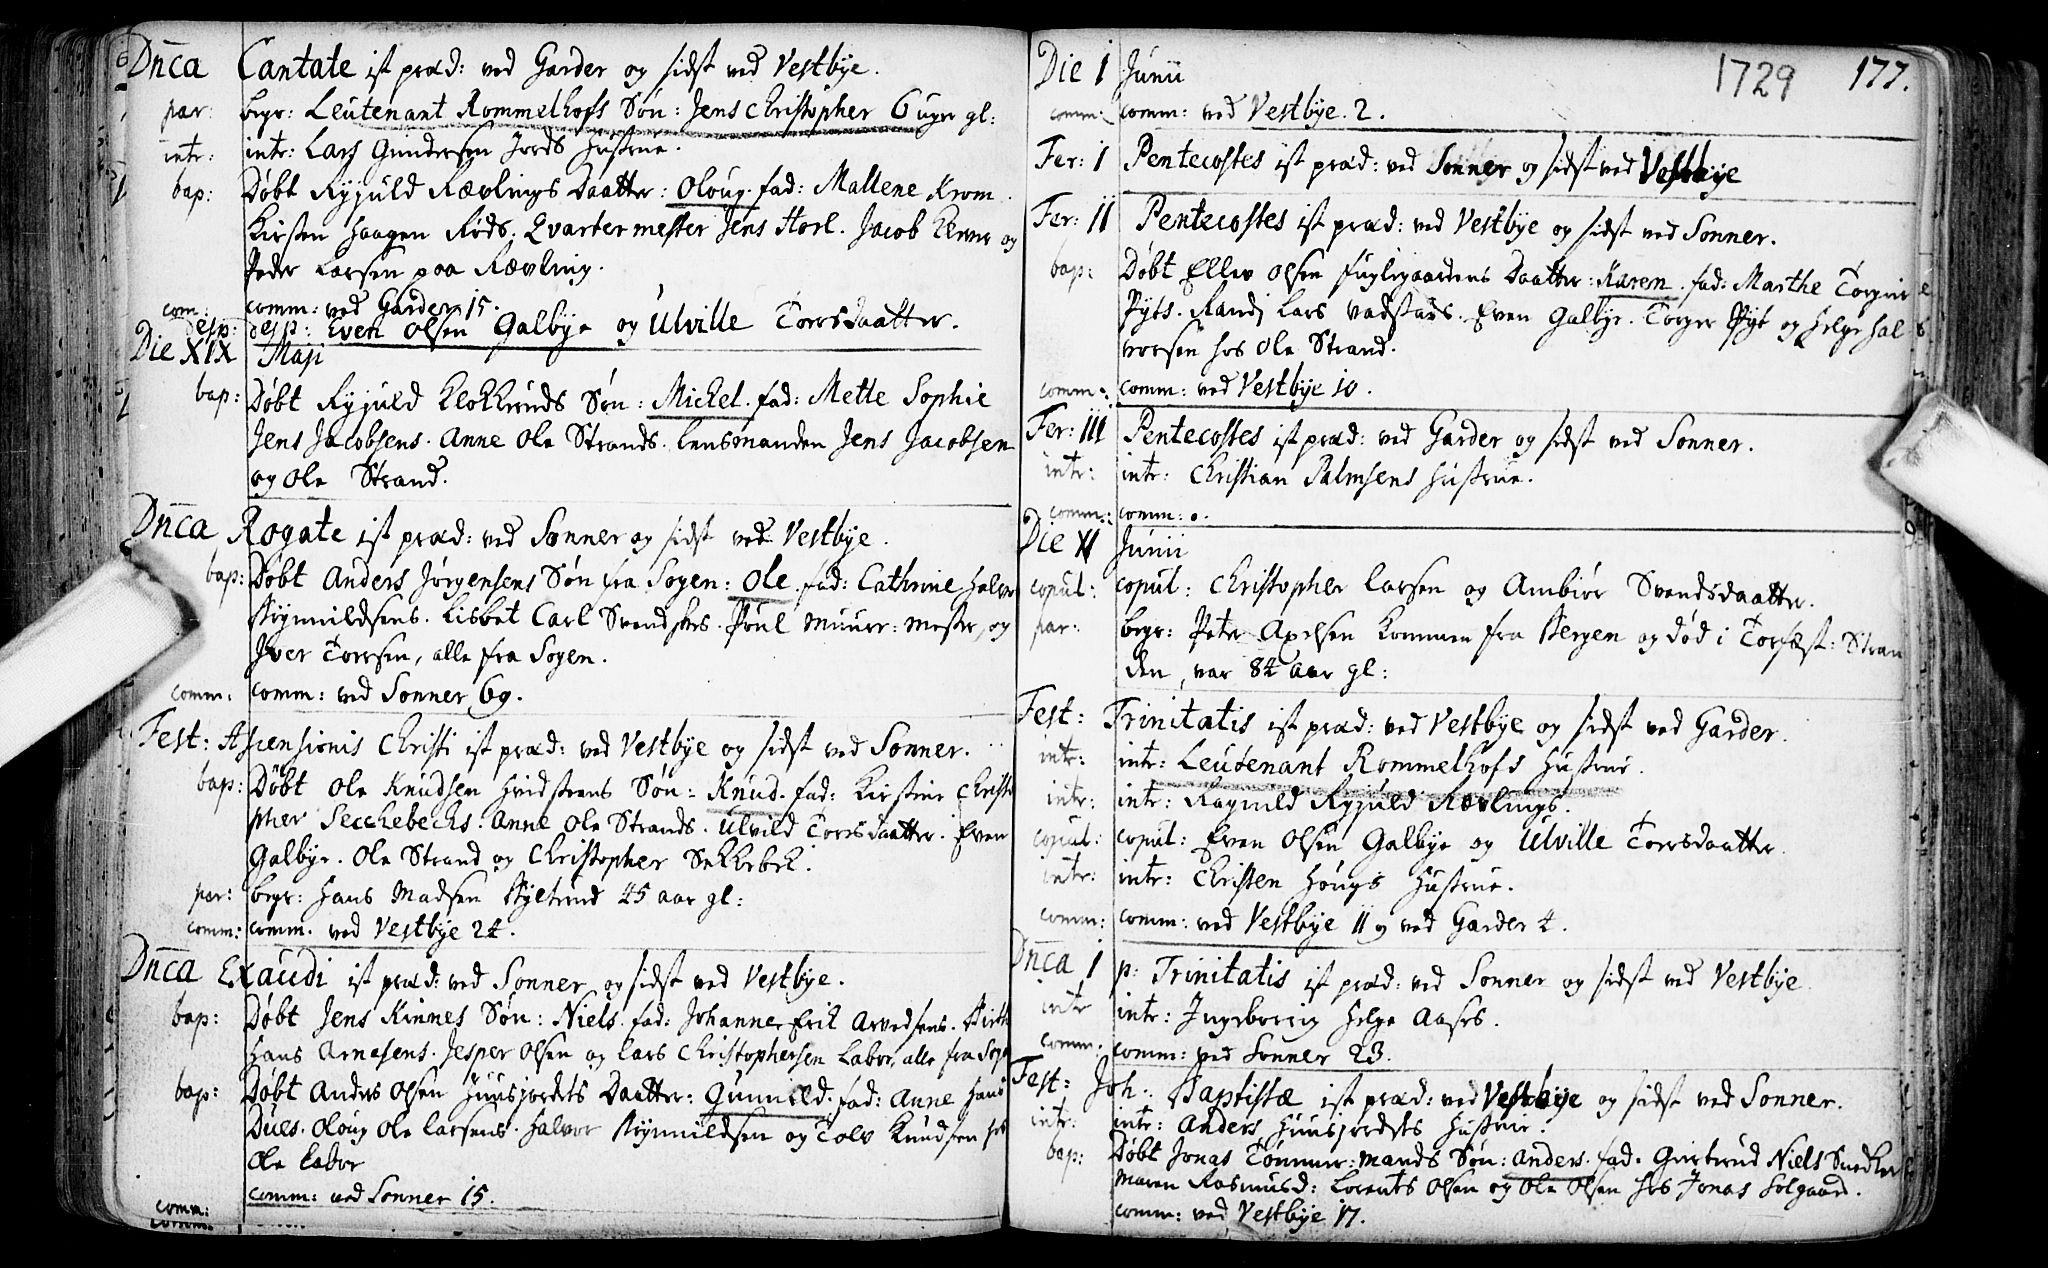 Dn̄ca Cantate ist præd: ved Garder og sidst ved Vestbÿe.
par: begr: Leutenant Rommelhofs Søn: Jens Christopher 6 uger gl:
intr: intr: Lars Gundersen Hords Hustrue.
bap: Døbt Ryjuld Rævlings Daatter: Oloug. fad: Mallene Krom.
Kirsten Haagen Røds. Qvartermester Jens Horl. Jacob Klever og
Peder Larsen paa Rævling.
com: comm: ved Garder 15.
desp: desp: Even Olsen Galbye og Ulville Torrsdaatter.
Die XIX Maji
bap: Døbt Ryjuld Klokkruds Søn: Michel. fad: Mette Sophie
Jens Jacobsens. Anne Ole Strands. Lensmanden Jens Jacobsen
og Ole Strand.
Dn̄ca Rogate ist præd: ved Sonner og sidst ved Vestbÿe.
bap: Døbt Anders Jørgensens Søn fra Sogen: Ole. fad: Cathrine Halvor
Brynnildsens. Lisbet Carl Svendskes. Poul Muur-mester, og
Iver Torrsen, alle fra Sogen.
comm: comm: ved Sonner 69.
Fest: Ascensionis Christi ist præd: ved Vestbÿe og sidst ved Sonner.
bap: Døbt Ole Knudsen Hvidsteens Søn: Knud. fad: Kirstine Christo
pher Secchebechs. Anne Ole Strands. Ulvild Torrsdaatter. Even
Galbye. Ole Strand og Christopher Sekkebek.
par: begr: Hans Madsen Kjeltrud 45 aar gl:
comm: comm. ved Vestbÿe 24.
Dn̄ca Exaudi ist præd: ved Sonner og sidst ved Vestbÿe.
bap: Døbt Jens Kinnes Søn: Niels. fad: Johanne Erik Arvedsens. Birth
Hans Arnesens. Jesper Olsen og Lars Christophersen Labor, alle fra Soge
bap: Døbt Anders Olsen Huusjordets Daatter: Gunnild. fad: Anne Hans
Dues. Oloug Ole Larsens. Halvor Brynnildsen og Tolv Knudsen hos
Ole Labor
comm: comm: ved Sonner 15.
1729 177.
Die I Junii
comm: comm: ved Vestbÿe. 2.
Fer: I Pentecostes ist præd: ved Sonner og sidst ved Vestbÿe
Fer: II Pentecostes ist præd: ved Vestbÿe og sidst ved Sonner.
bap: Døbt Ellev Olsen Fuglegaardens Daatter: Karen. fad: Marthe Torger
Pyts. Randj Lars Vadstads. Even Galbye. Torger Pyt og Helge Hal
vorsen hos Ole Strand.
comm: comm: ved Vestbÿe 10.
Fer: III Pentecostes ist præd: ved Garder og sidst ved Sonner.
intr: intr: Christian Palmsens Hustrue.
comm: comm: 0.
Die XI Junii
copul: copul: Christopher Larsen og Ambiør Svendsdaatter.
par: begr: Peter Axelsen kommen fra Bergen og død i Torfæst: Stran
den, var 84 aar gl:
Fest: Trinitatis ist præd: ved Vestbÿe og sidst ved Garder.
intr: intr: Leutenant Rommelhofs Hustrue.
intr: intr: Ragnild Ryjuld Rævlings.
copul: copul: Even Olsen Galbye og Ulville Torrsdaatter.
intr: intr: Christen Høugs Hustrue.
comm: comm: ved Vestbÿe 11 og ved Garder 4.
Dn̄ca I p: Trinitatis ist præd: ved Sonner og sidst ved Vestbÿe.
intr intr: Ingeborrig Helge Aases.
comm: comm: ved Sonner 23.
Fest: Joh: Baptistæ ist præd: ved Vestbÿe og sidst ved Sonner.
intr: intr: Anders Huusjordets Hustrue.
bap: Døbt Jonas Tømmer-mands Søn: Anders. fad. Giertrud Niels Snedker
Maren Rasmusd: Lorents Olsen og Ole Olsen hos Jonas Solgaard.
comm: ved Vestbÿe 17.